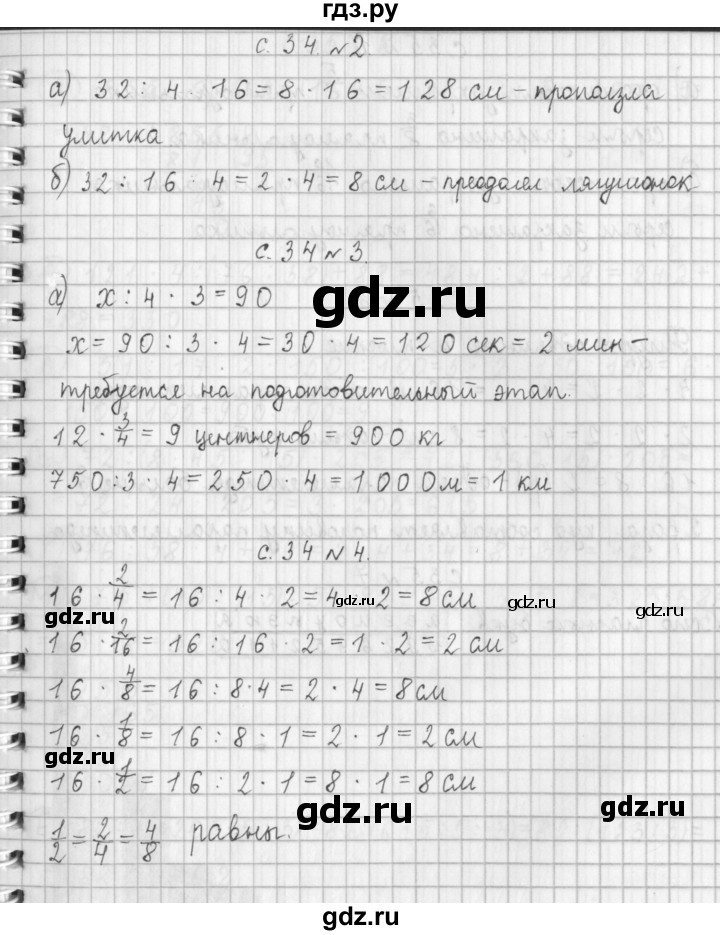 гдз.ру
с. 34. №2
а) 32 : 4 · 16 = 8 · 16 = 128 см – проползла
улитка
б) 32 : 16 · 4 = 2 · 4 = 8 см – преодолел лягушонок
с. 34 № 3.
а) x : 4 · 3 = 90
gdz.ru
x = 90 : 3 · 4 = 30 · 4 = 120 сек = 2 мин –
требуется на подготовительный этап.
12 · 3/4 = 9 центнеров = 900 кг
750 : 3 · 4 = 250 · 4 = 1000 м = 1 км
с. 34 № 4.
16 · 2/4 = 16 : 4 · 2 = 4 · 2 = 8 см
gdz.ru gdz.ru gdz.ru
16 · 2/16 = 16 : 16 · 2 = 1 · 2 = 2 см
16 · 4/8 = 16 : 8 · 4 = 2 · 4 = 8 см
16 · 1/8 = 16 : 8 · 1 = 2 · 1 = 2 см
gdz.ru
16 · 1/2 = 16 : 2 · 1 = 8 · 1 = 8 см
gdz.ru gdz.ru
1/2 = 2/4 = 4/8 равны.
gdz.ru